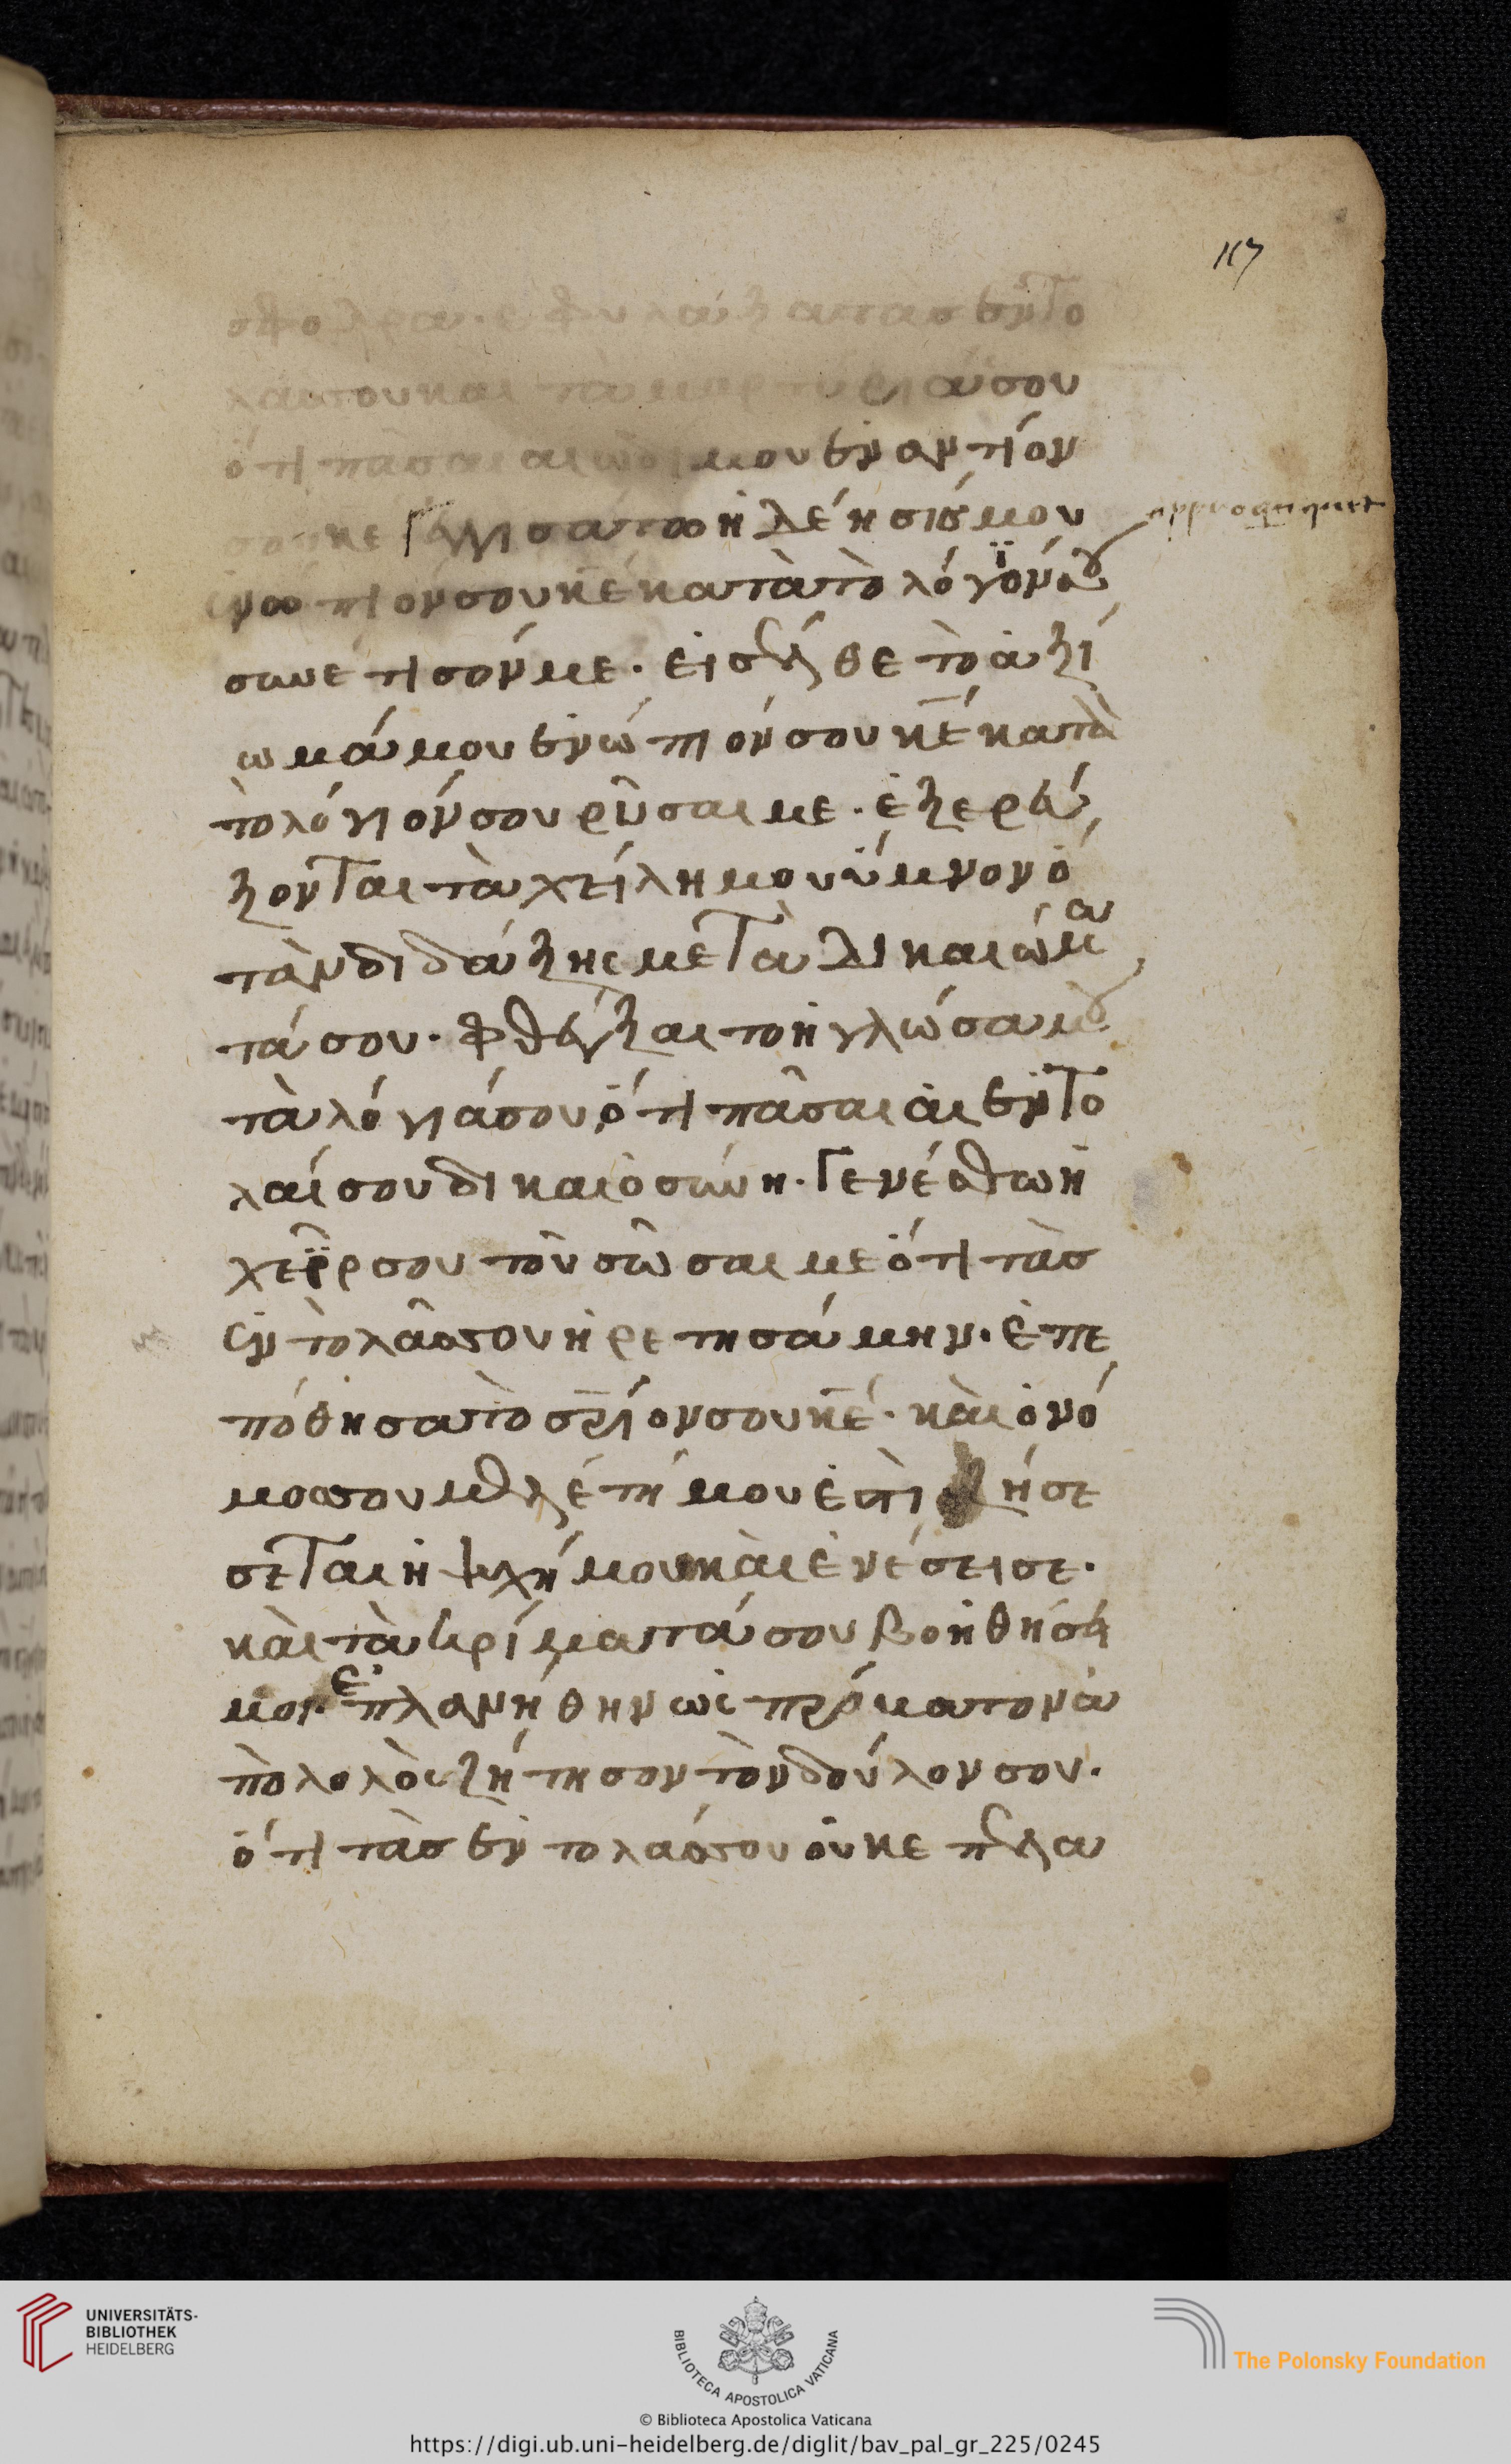 117
σφοδρα. ἐφυλαξα τασ ἐντο
λάσσου και τα μαρτύριά σου
ότι πᾶσαι αι ὁδοί μου ἐναντίον
σου κε Γγισάτω ἡ δέησίσ μου
appropinquet
ἐνώπιον σου κε κατὰ τὸ λόγϊόν σου
συνετησόν με. εἰσέλθε τὸ ἀξί
ωμά μου ἐνώπιόν σου κε κατὰ
τὸ λόγιόν σου ρῦσαι με. ἐξερεύ
ξονται τὰ χείλη μου ὕμνον ὅ
τὰν διδάξης με τὰ δικαιώμα
τά σου. φθέγξαι το ἡ γλώσα μου
τὰ λόγιά σου, ότι πᾶσαι ἁι ἐντο
λαί σου δικαιὀσύνη. Γενέσθω ἡ
χεῖρ σου τοῦ σῶσαι με ότι τὰσ
ἐντὸλάσσου ἡρετησάμην. ἐπε
πόθησα τὸ σρίον σου κε. κὰι ὁ νό
μοσσου μελέτη μου ἐστὶ ζήσε
σεται ἡ ψυχή μου κὰι ἐνέσει σε.
κὰι τὰ κρίματά σου βοἡθήσει
μοι. ἐπλανήθην ὡς πρόβατον ἀ
πὸλολὸς ζήτησον τὸν δούλον σου.
ότι τὰσ ἐντολάσσου ὀυκ επελα
UNIVERSITÄTS-
BIBLIOTHEK
HEIDELBERG
BIBLIOTECA APOSTOLICA VATICANA
The Polonsky Foundation
© Biblioteca Apostolica Vaticana
https://digi.ub.uni-heidelberg.de/diglit/bav_pal_gr_225/0245